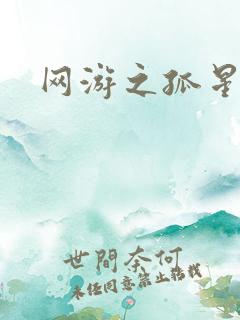 网游之孤星
世間奈何
未经同意禁止转载